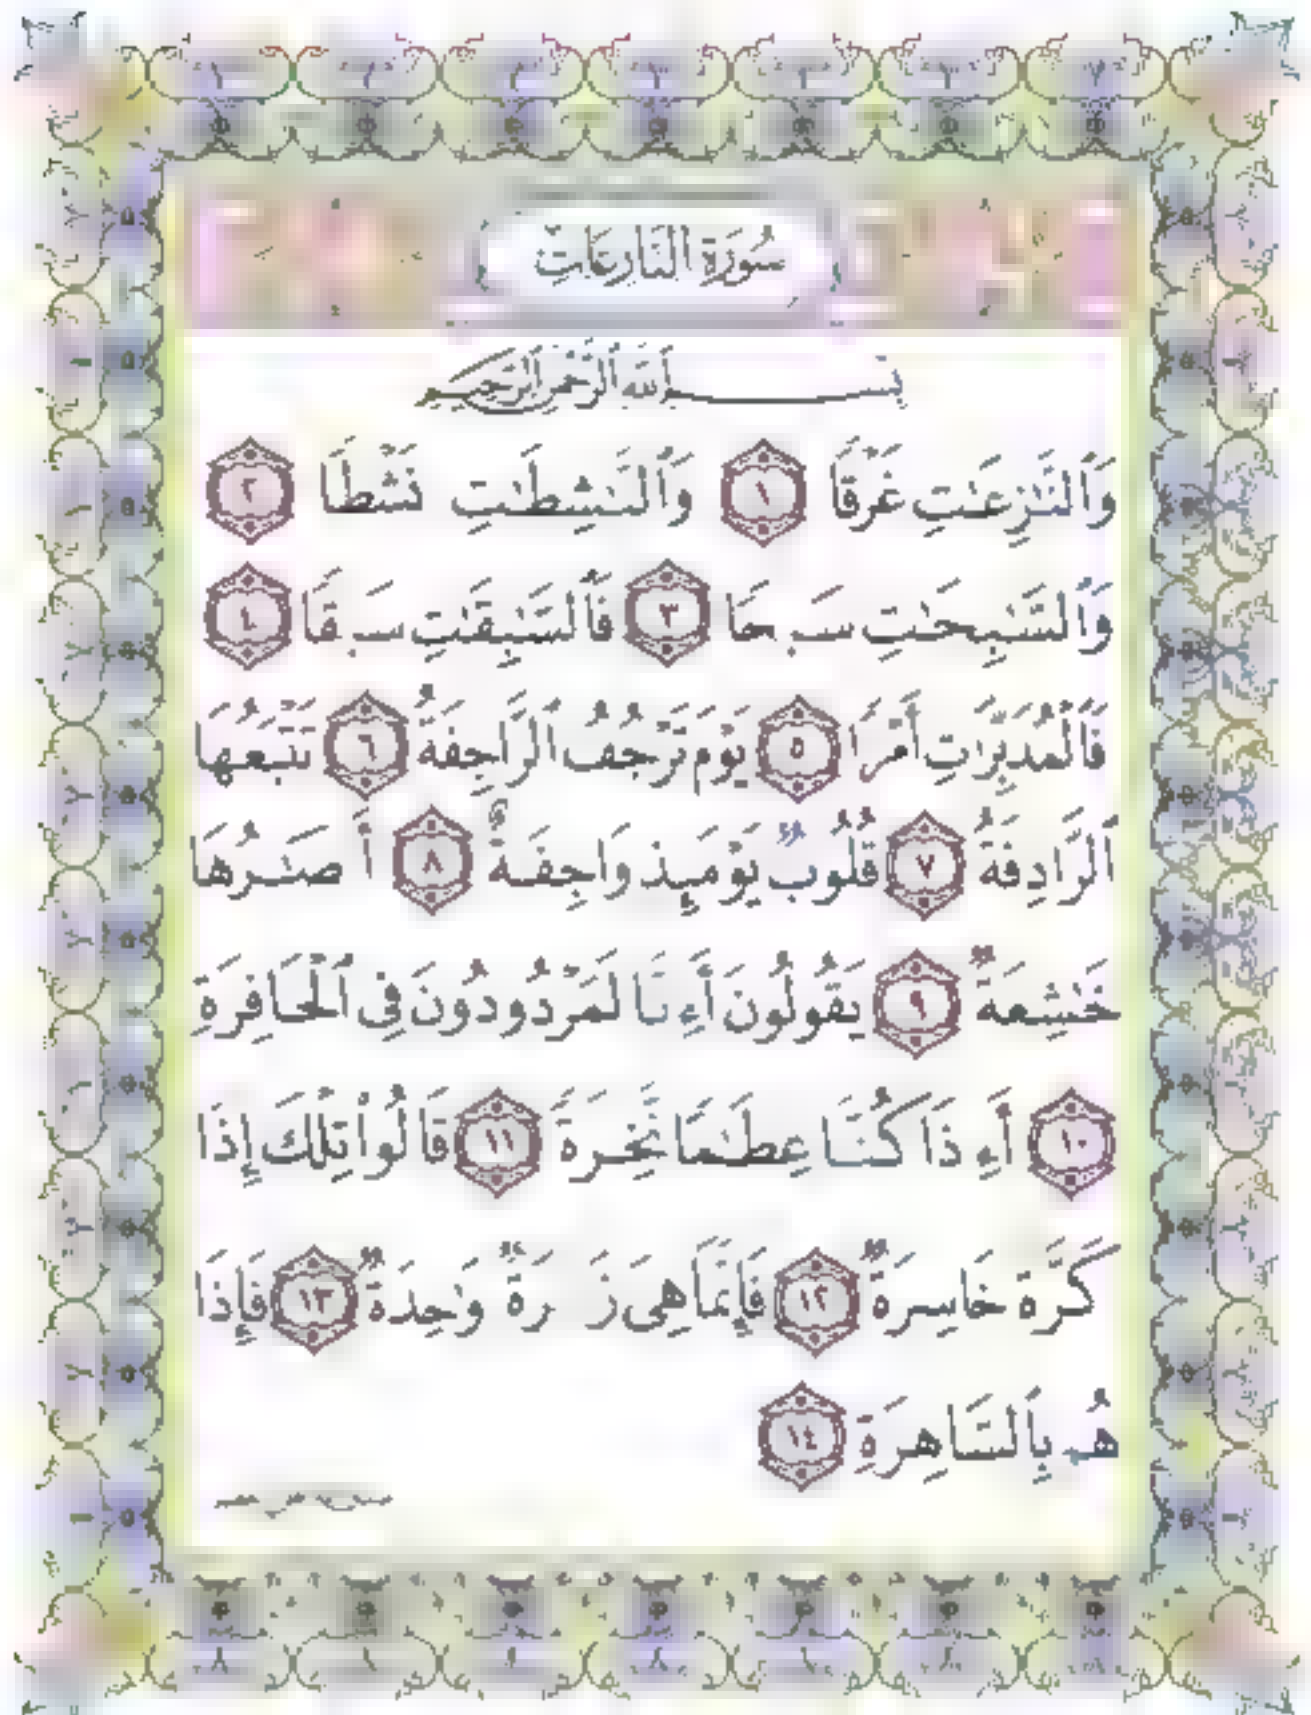 سُورَةُ النَّازِعَات
بِسْمِ ٱللَّهِ ٱلرَّحْمَٰنِ ٱلرَّحِيمِ
وَٱلنَّٰزِعَٰتِ غَرْقًا ١ وَٱلنَّٰشِطَٰتِ نَشْطًا ٢
وَٱلسَّٰبِحَٰتِ سَبْحًا ٣ فَٱلسَّٰبِقَٰتِ سَبْقًا ٤
فَٱلْمُدَبِّرَٰتِ أَمْرًا ٥ يَوْمَ تَرْجُفُ ٱلرَّاجِفَةُ ٦ تَتْبَعُهَا
ٱلرَّادِفَةُ ٧ قُلُوبٌ يَوْمَئِذٍ وَاجِفَةٌ ٨ أَبْصَٰرُهَا
خَٰشِعَةٌ ٩ يَقُولُونَ أَءِنَّا لَمَرْدُودُونَ فِى ٱلْحَافِرَةِ
١٠ أَءِذَا كُنَّا عِظَٰمًا نَّخِرَةً ١١ قَالُوا۟ تِلْكَ إِذًا
كَرَّةٌ خَاسِرَةٌ ١٢ فَإِنَّمَا هِىَ زَجْرَةٌ وَٰحِدَةٌ ١٣ فَإِذَا
هُم بِٱلسَّاهِرَةِ ١٤